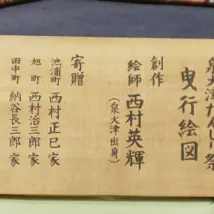 泉大津だんじり祭
曳行絵図
創作
絵師 西村英輝
(泉大津出身)
寄贈
池浦町 西村正巳 家
旭町 西村治三郎 家
田中町 納谷長三郎 家